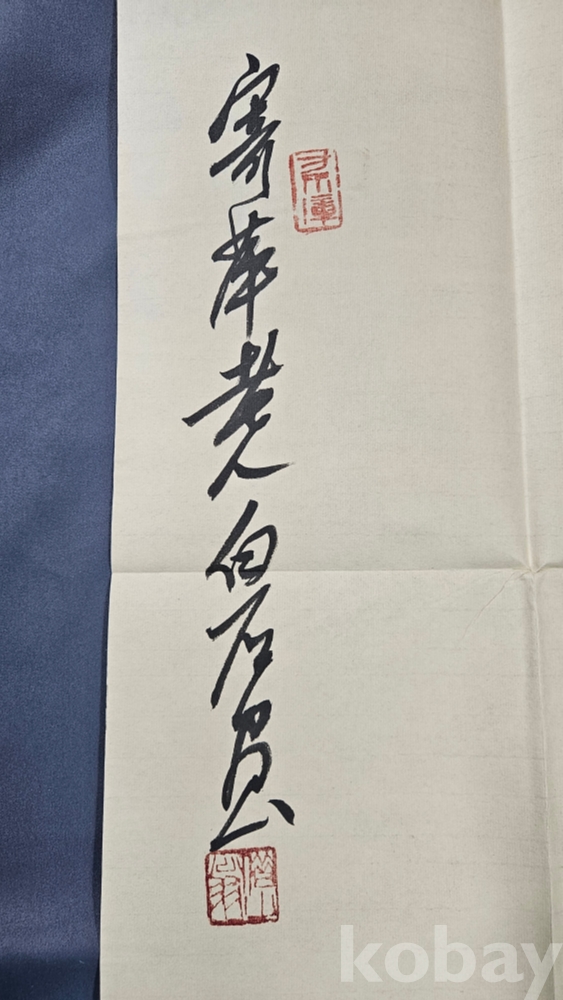 寄萍老人白石
萍翁
kobay